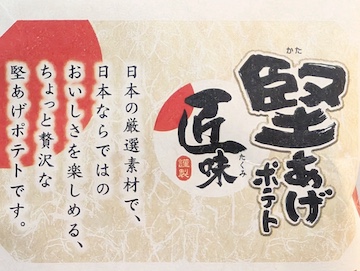 堅あげ
かた
ポテト
匠味
たくみ
謹製
日本の厳選素材で、
日本ならではの
おいしさを楽しめる、
ちょっと贅沢な
堅あげポテトです。